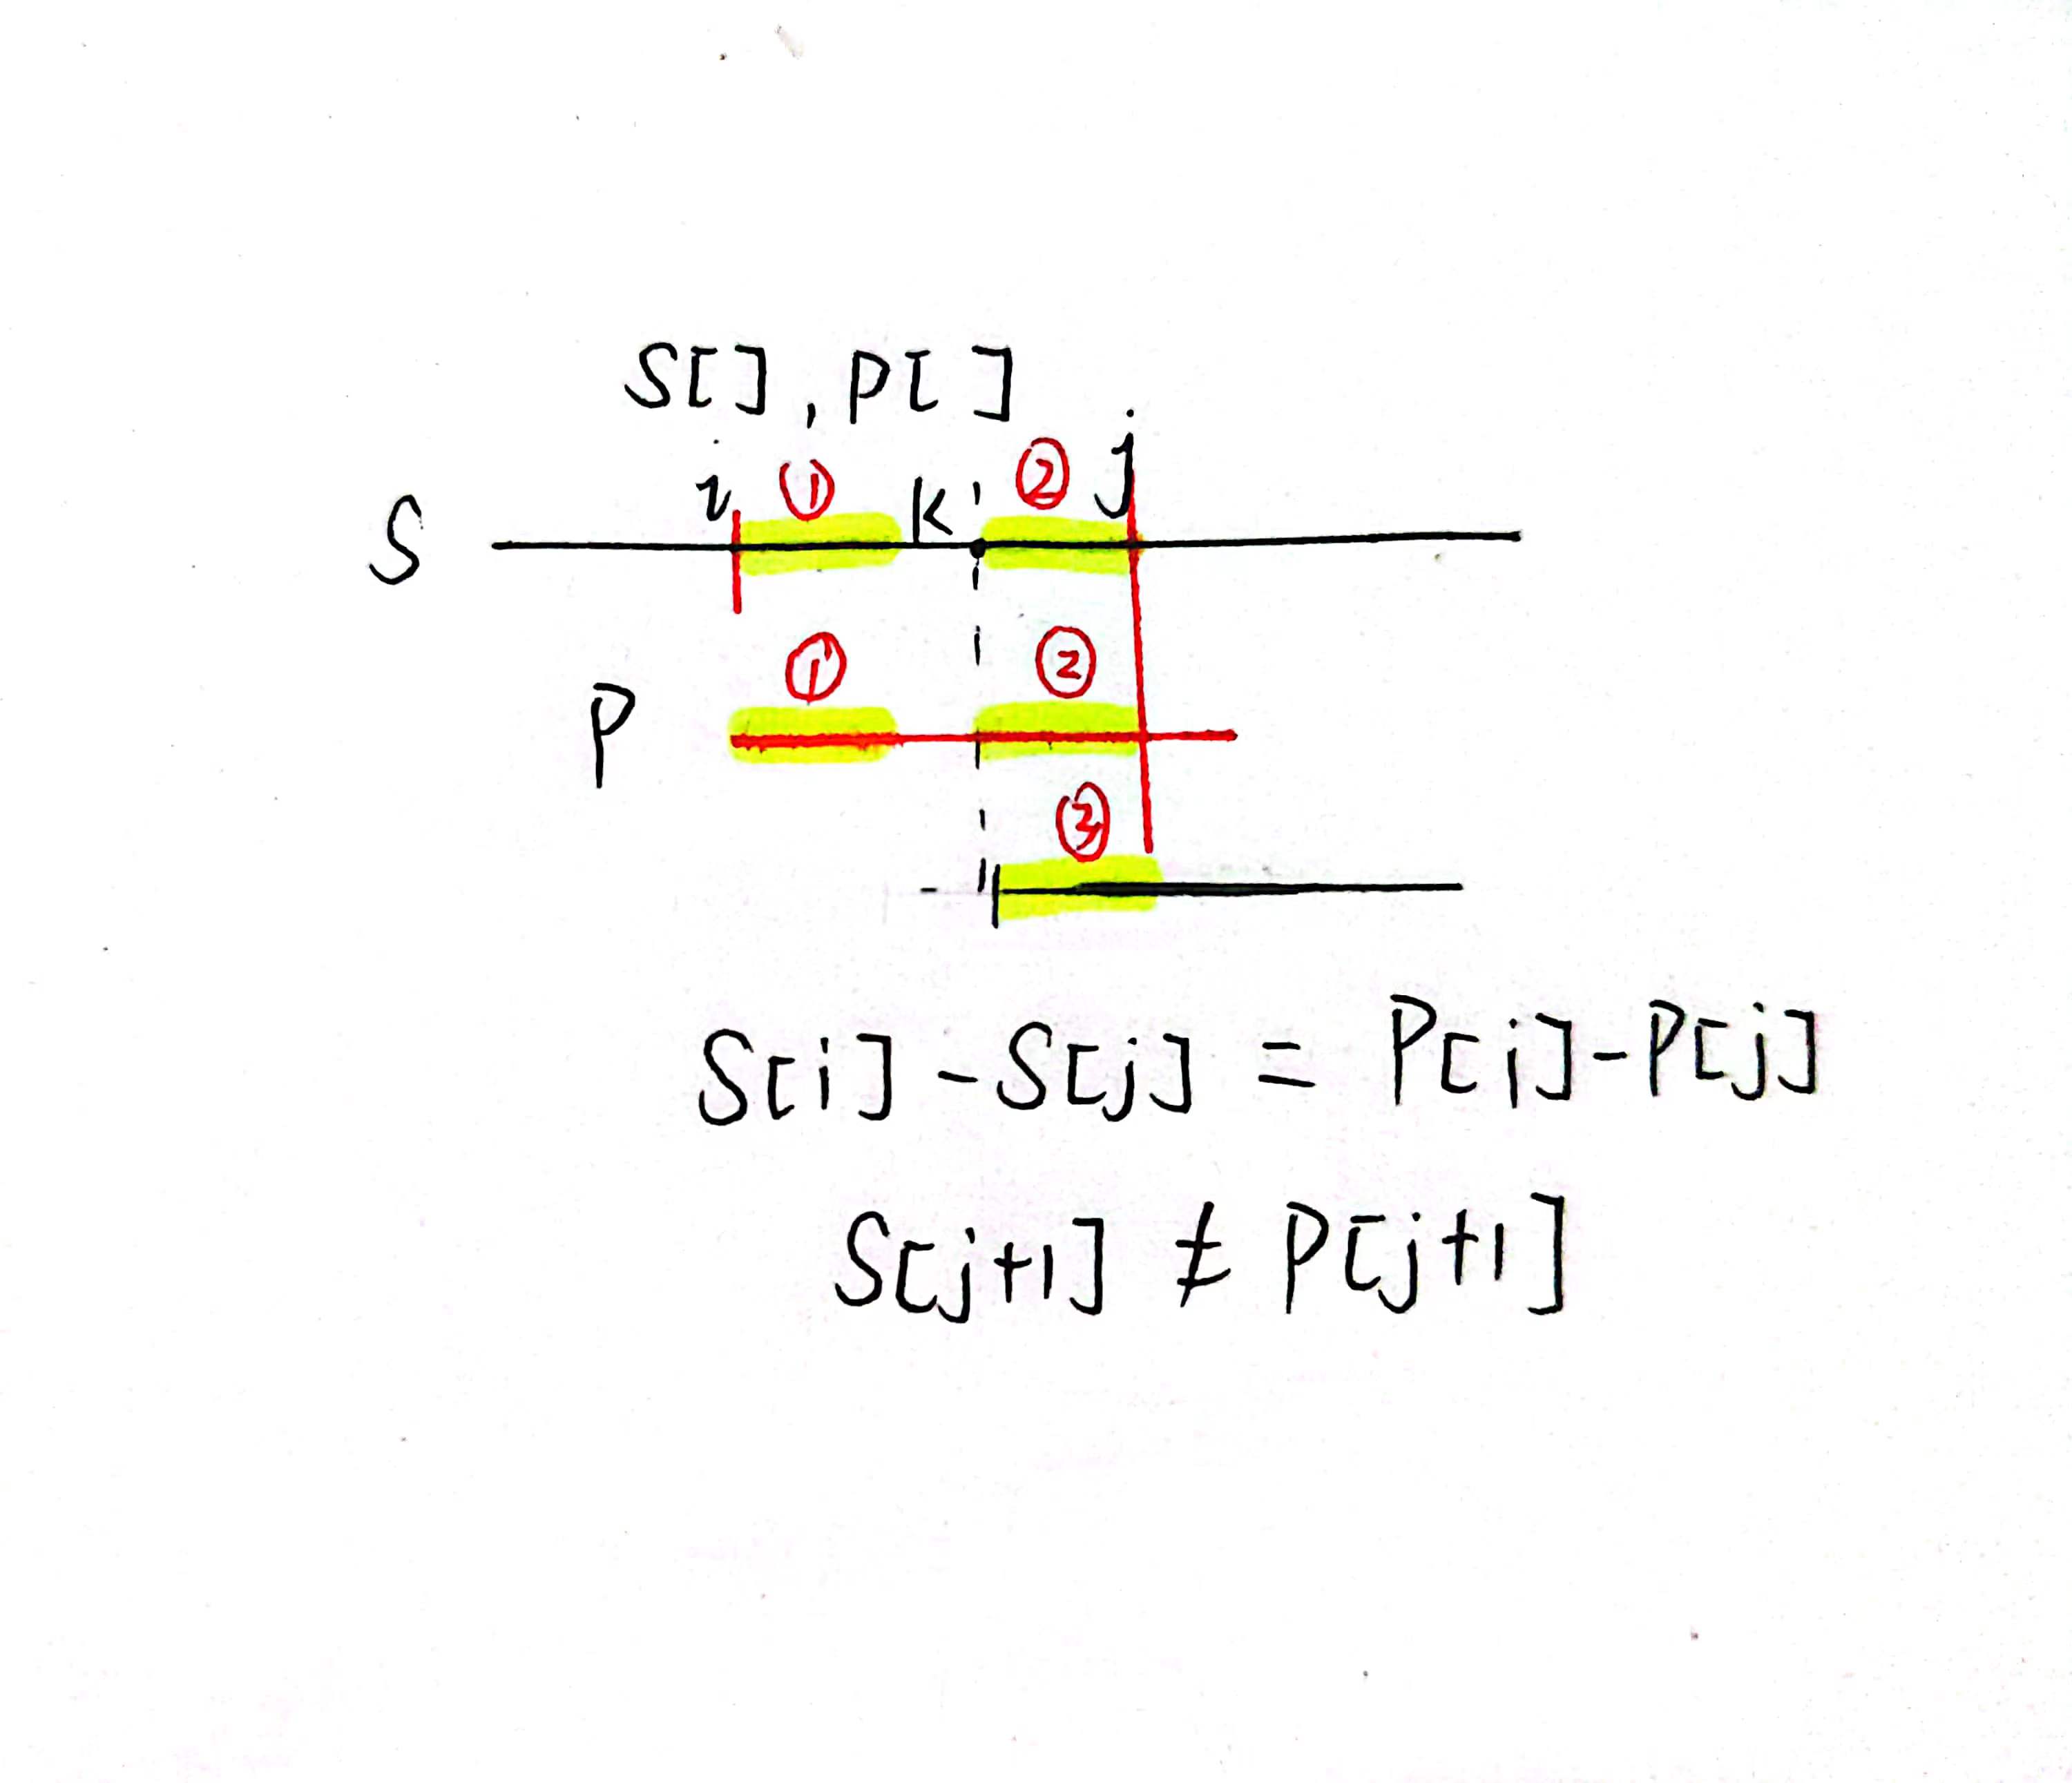 S[], P[ ]
i ① k ② j
S
① ②
P
③
S[i]-S[j] = P[i]-P[j]
S[j+1] ≠ P[j+1]